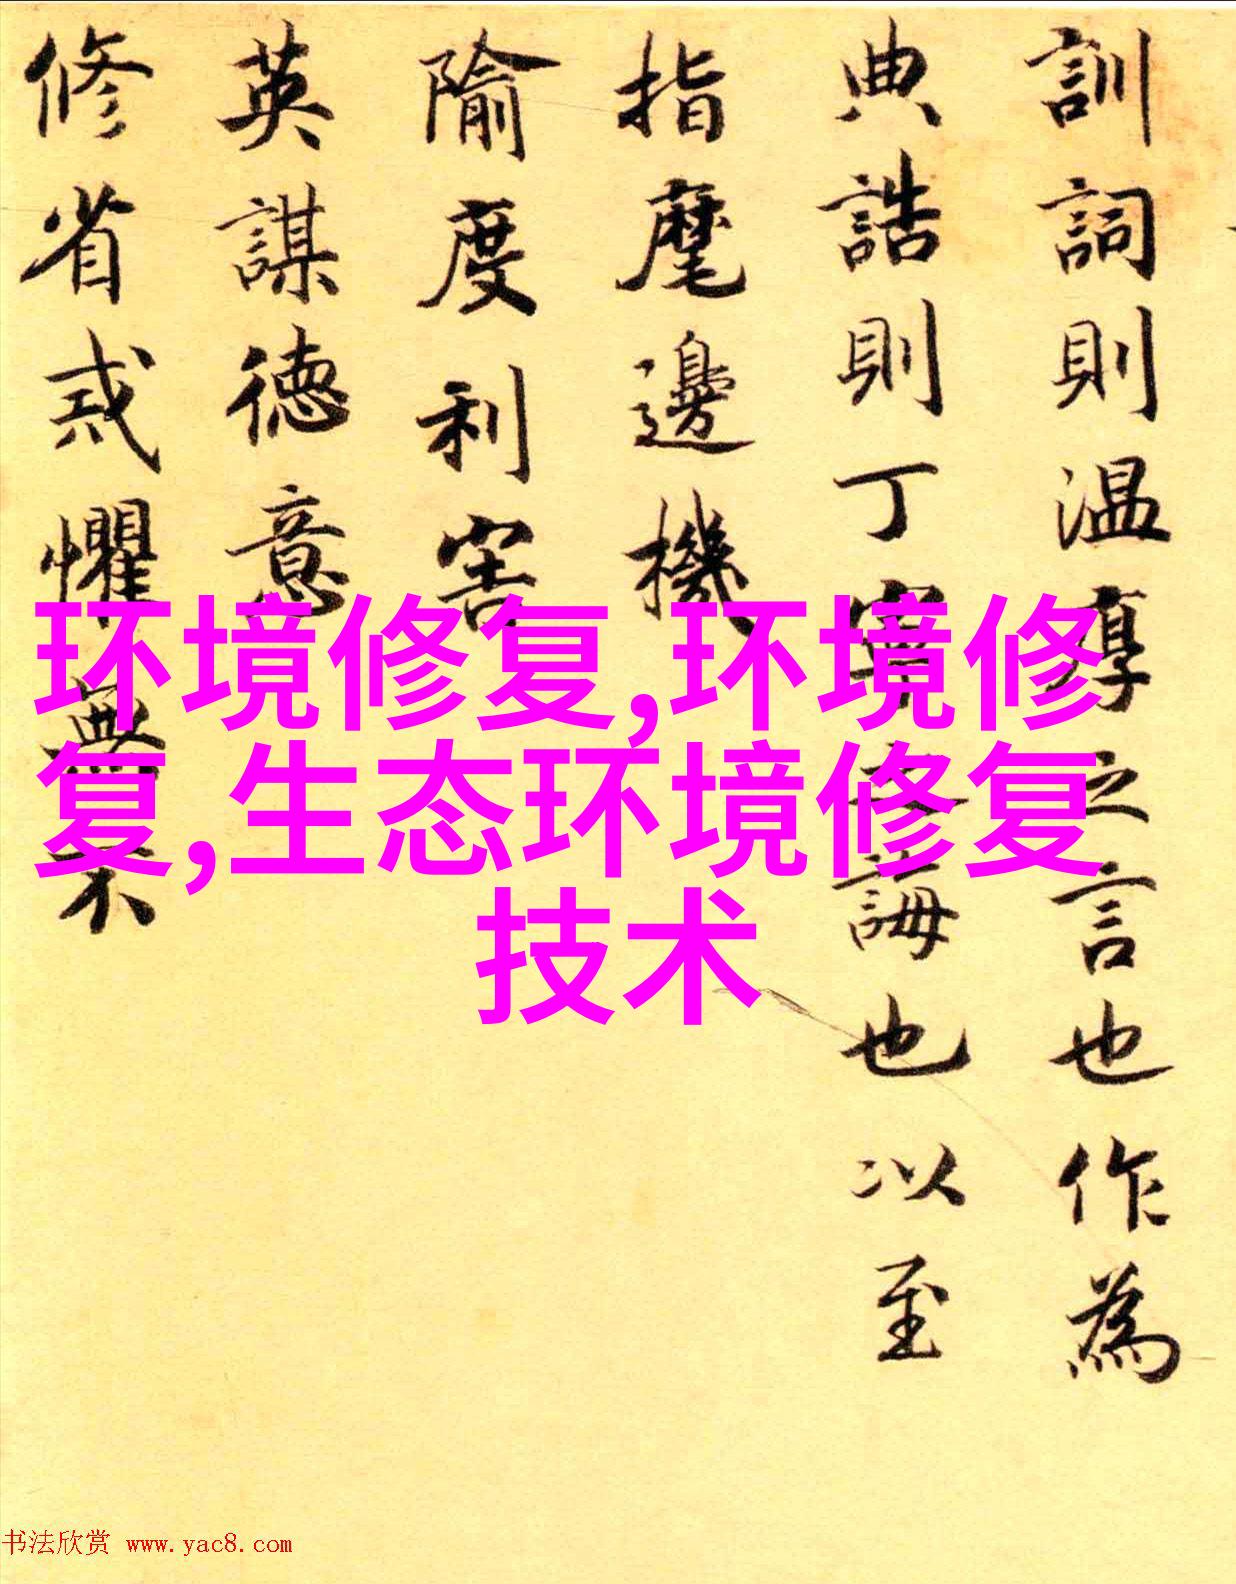 訓詞則温厚之言也作為
典誥則丁寧之誨也以至
指麾邊機
隃度利害
英謀德意
修省戒懼無不
环境修复,环境修
复,生态环境修复
技术
书法欣赏 www.yac8.com